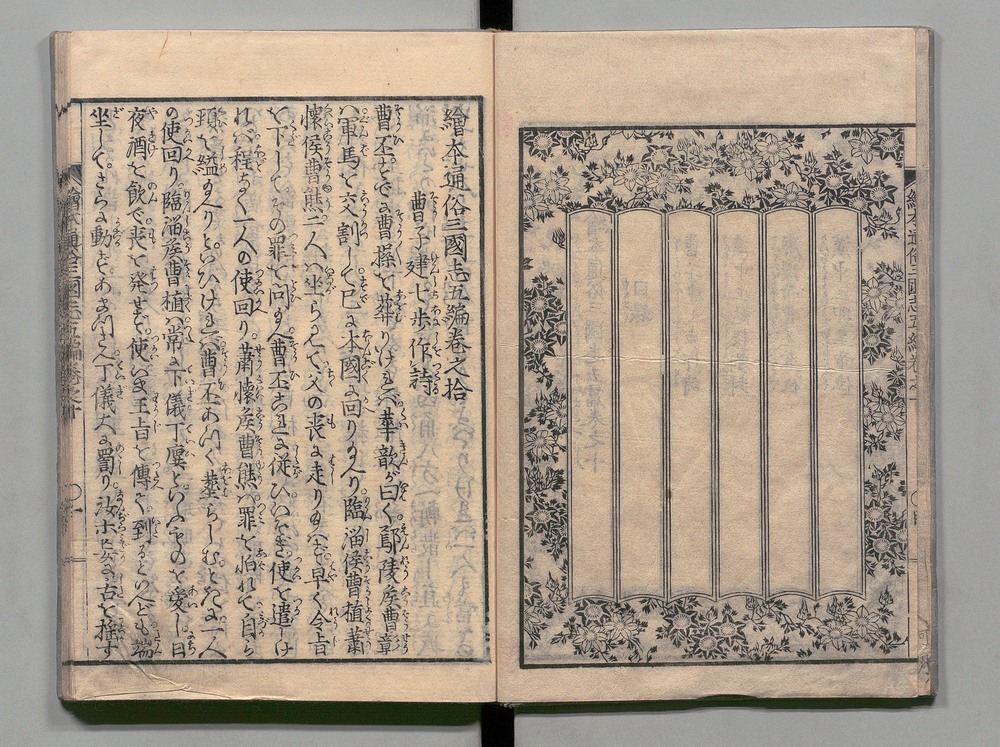 繪本通俗三國志五編卷之拾
曹子建七歩作詩
曹丕すでに曹操を葬りければ華歆が曰く鄢陵侯曹章
ハ軍馬を交割して已に本國に回り玉へり臨淄侯曹植蕭
懷侯曹熊二人ハ坐らにして父の喪に走り玉はず早く令旨
を下してその罪を問玉へ曹丕これに従ひいそぎ使を遣しけ
れバ程なく一人の使回り蕭懷侯曹熊ハ罪を怕れて自ら
頸を縊玉へりといひけれバ曹丕あつく葬らしむまた一人
の使回り臨淄侯曹植ハ常に下儀丁廙といふものを愛し日
夜酒を飲で喪を発せず使いま王旨を傳へ到るといへども端
坐してさらに動ずあまつさへ丁儀大に罵り汝ホ
繪本通俗三國志五編卷之十